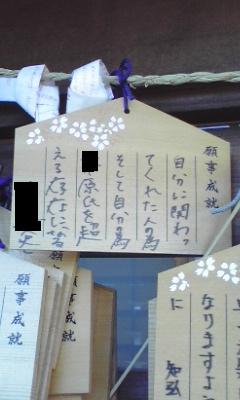 願事成就
自分に関わっ
てくれた人の為
そして自分の為
原氏を超
える存在に
願事
願事成就
願事成就
なりますよう
に